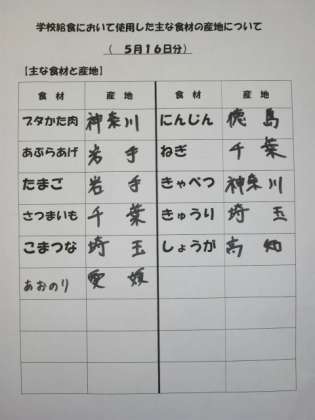 学校給食において使用した主な食材の産地について
( 5月16日分)
【主な食材と産地】
食材 産地 食材 産地
ブタかた肉 神奈川 にんじん 徳島
あぶらあげ 岩手 ねぎ 千葉
たまご 岩手 きゃべつ 神奈川
さつまいも 千葉 きゅうり 埼玉
こまつな 埼玉 しょうが 高知
あおのり 愛媛